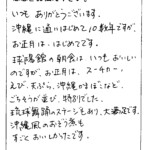 いつも ありがとうございます。
沖縄に通いはじめて10数年ですが、
お正月は、はじめてです。
球陽館の朝食は いつも おいしい
のですが、お正月は、スーチカー、
えび、天ぷら、沖縄かまぼこなど、
ごちそうが並び、特別でした。
琉球舞踊のステージもあり、大満足です。
沖縄風のおぞう煮も
すごく おいしかったです。